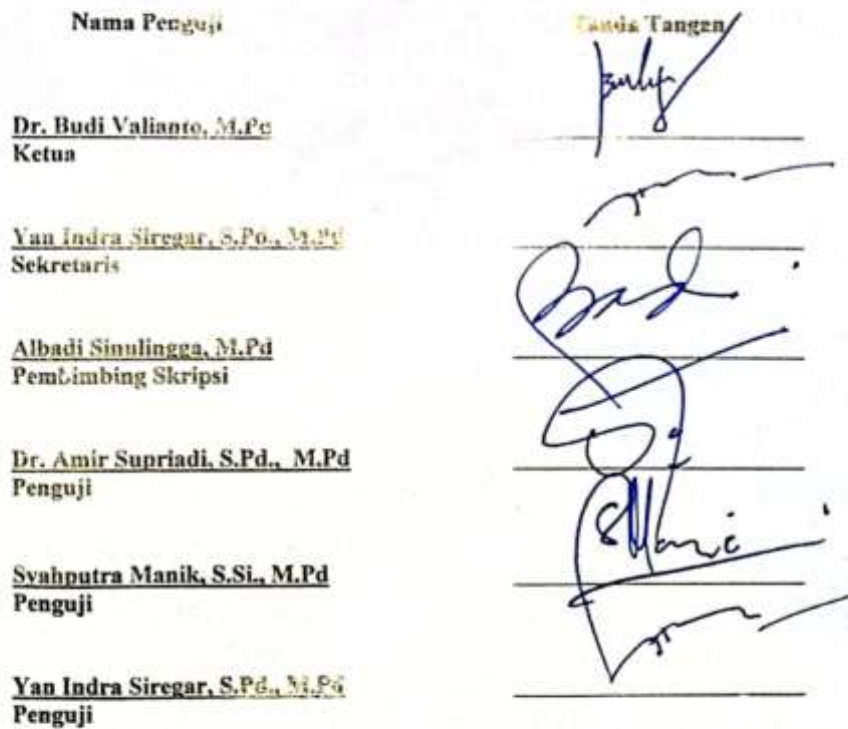 Nama Penguji
Tanda Tangan
Dr. Budi Valianto, M.Pd
Ketua
Yan Indra Siregar, S.Pd., M.Pd
Sekretaris
Albadi Sinulingga, M.Pd
Pembimbing Skripsi
Dr. Amir Supriadi, S.Pd., M.Pd
Penguji
Syahputra Manik, S.Si., M.Pd
Penguji
Yan Indra Siregar, S.Pd., M.Pd
Penguji